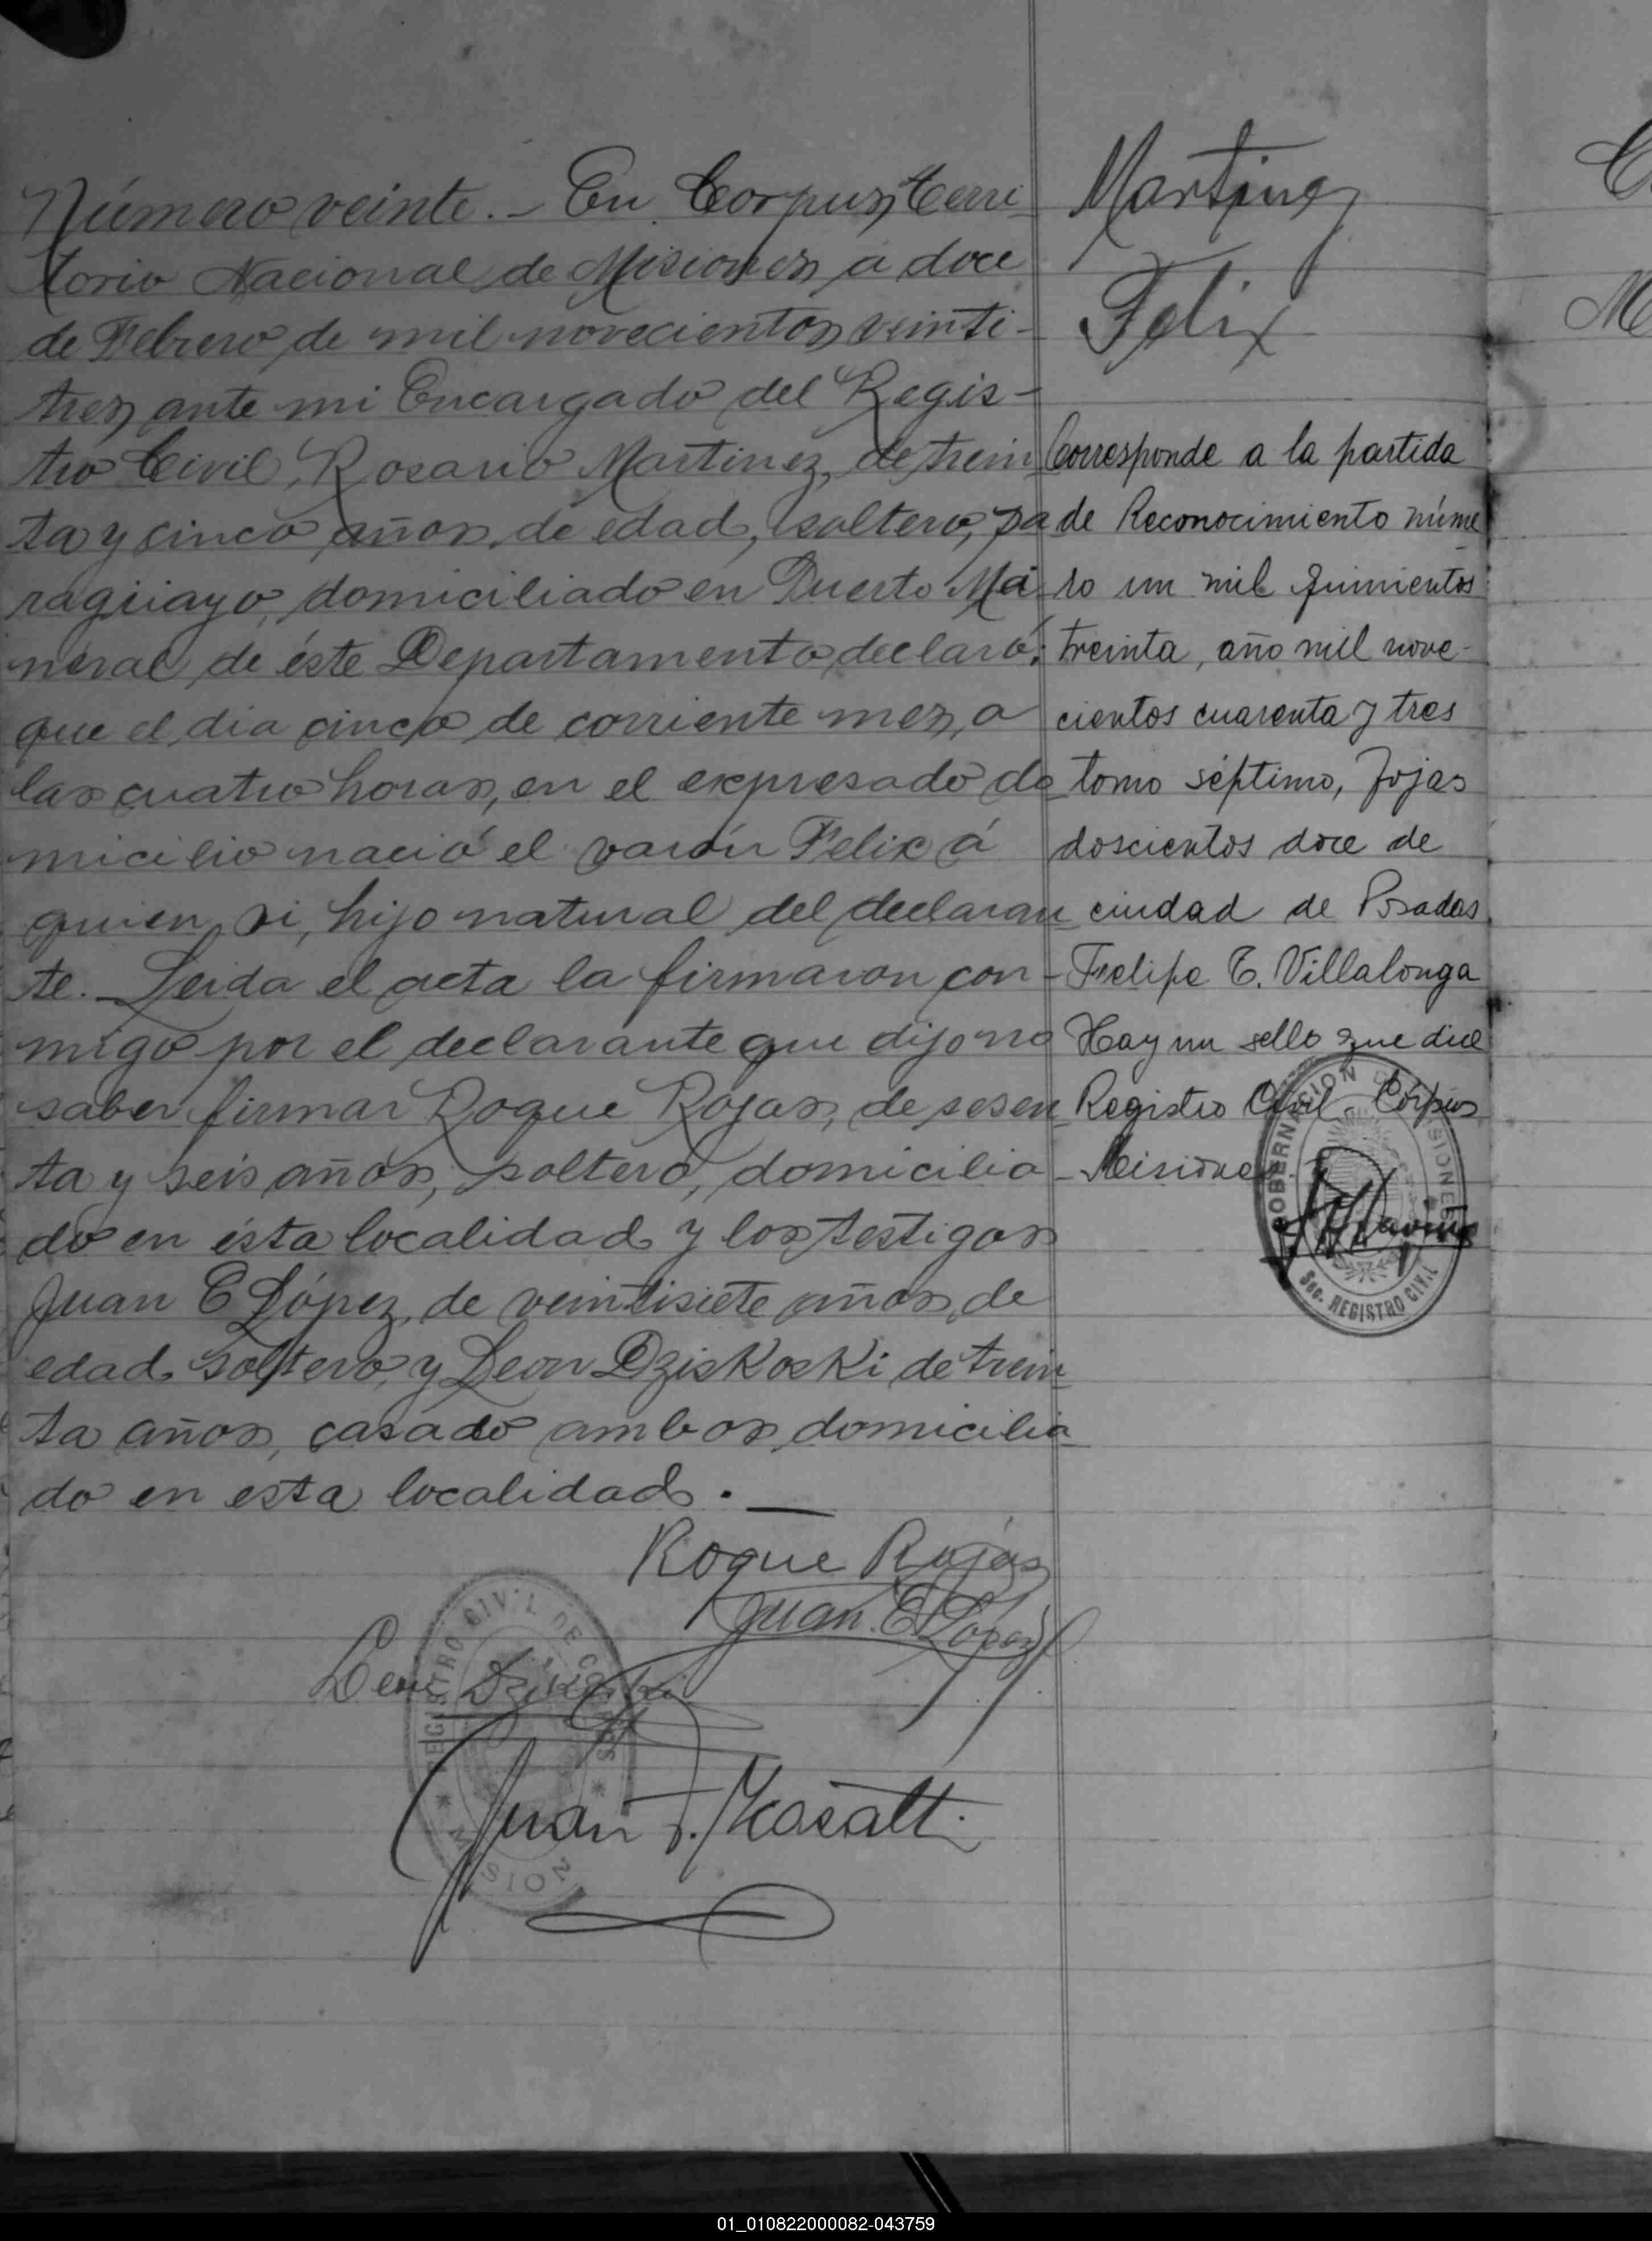 Número veinte. - En Corpus, Terri
torio Nacional de Misiones, a doce
de Febrero de mil novecientos veinti-
tres, ante mi Encargado del Regis-
tro Civil, Rosario Martinez, de trein
ta y cinco años, de edad, soltero, pa
raguayo, domiciliado en Puerto Mi
neral de éste Departamento declaró:
que el dia cinco de corriente mes, a
las cuatro horas, en el expresado do
micilio nació el varón Felix á
quien, vi, hijo natural del declaran
te. - Leida el acta la firmaron con-
migo por el declarante que dijo no
saber firmar Roque Rojas, de sesen
ta y seis años, soltero, domicilia
do en ésta localidad y los testigos
Juan E López, de veintisiete años, de
edad, soltero, y Leon Dziskoski de trein
ta años, casado ambos domicilia
do en esta localidad. -
Roque Rojas
Juan. E. López
Leon
Juan
REGISTRO CIVIL DE CORPUS
* MISION
Martinez
Felix
Corresponde a la partida
de Reconocimiento núme
ro un mil quinientos
treinta, año mil nove-
cientos cuarenta y tres
tomo séptimo, fojas
doscientos doce de
ciudad de Posadas
Felipe T. Villalonga
Hay un sello que dice
Registro Civil Corpus
Misiones
GOBERNACION DE MISIONES
Sec. REGISTRO CIVIL
C
M
01_010822000082-043759